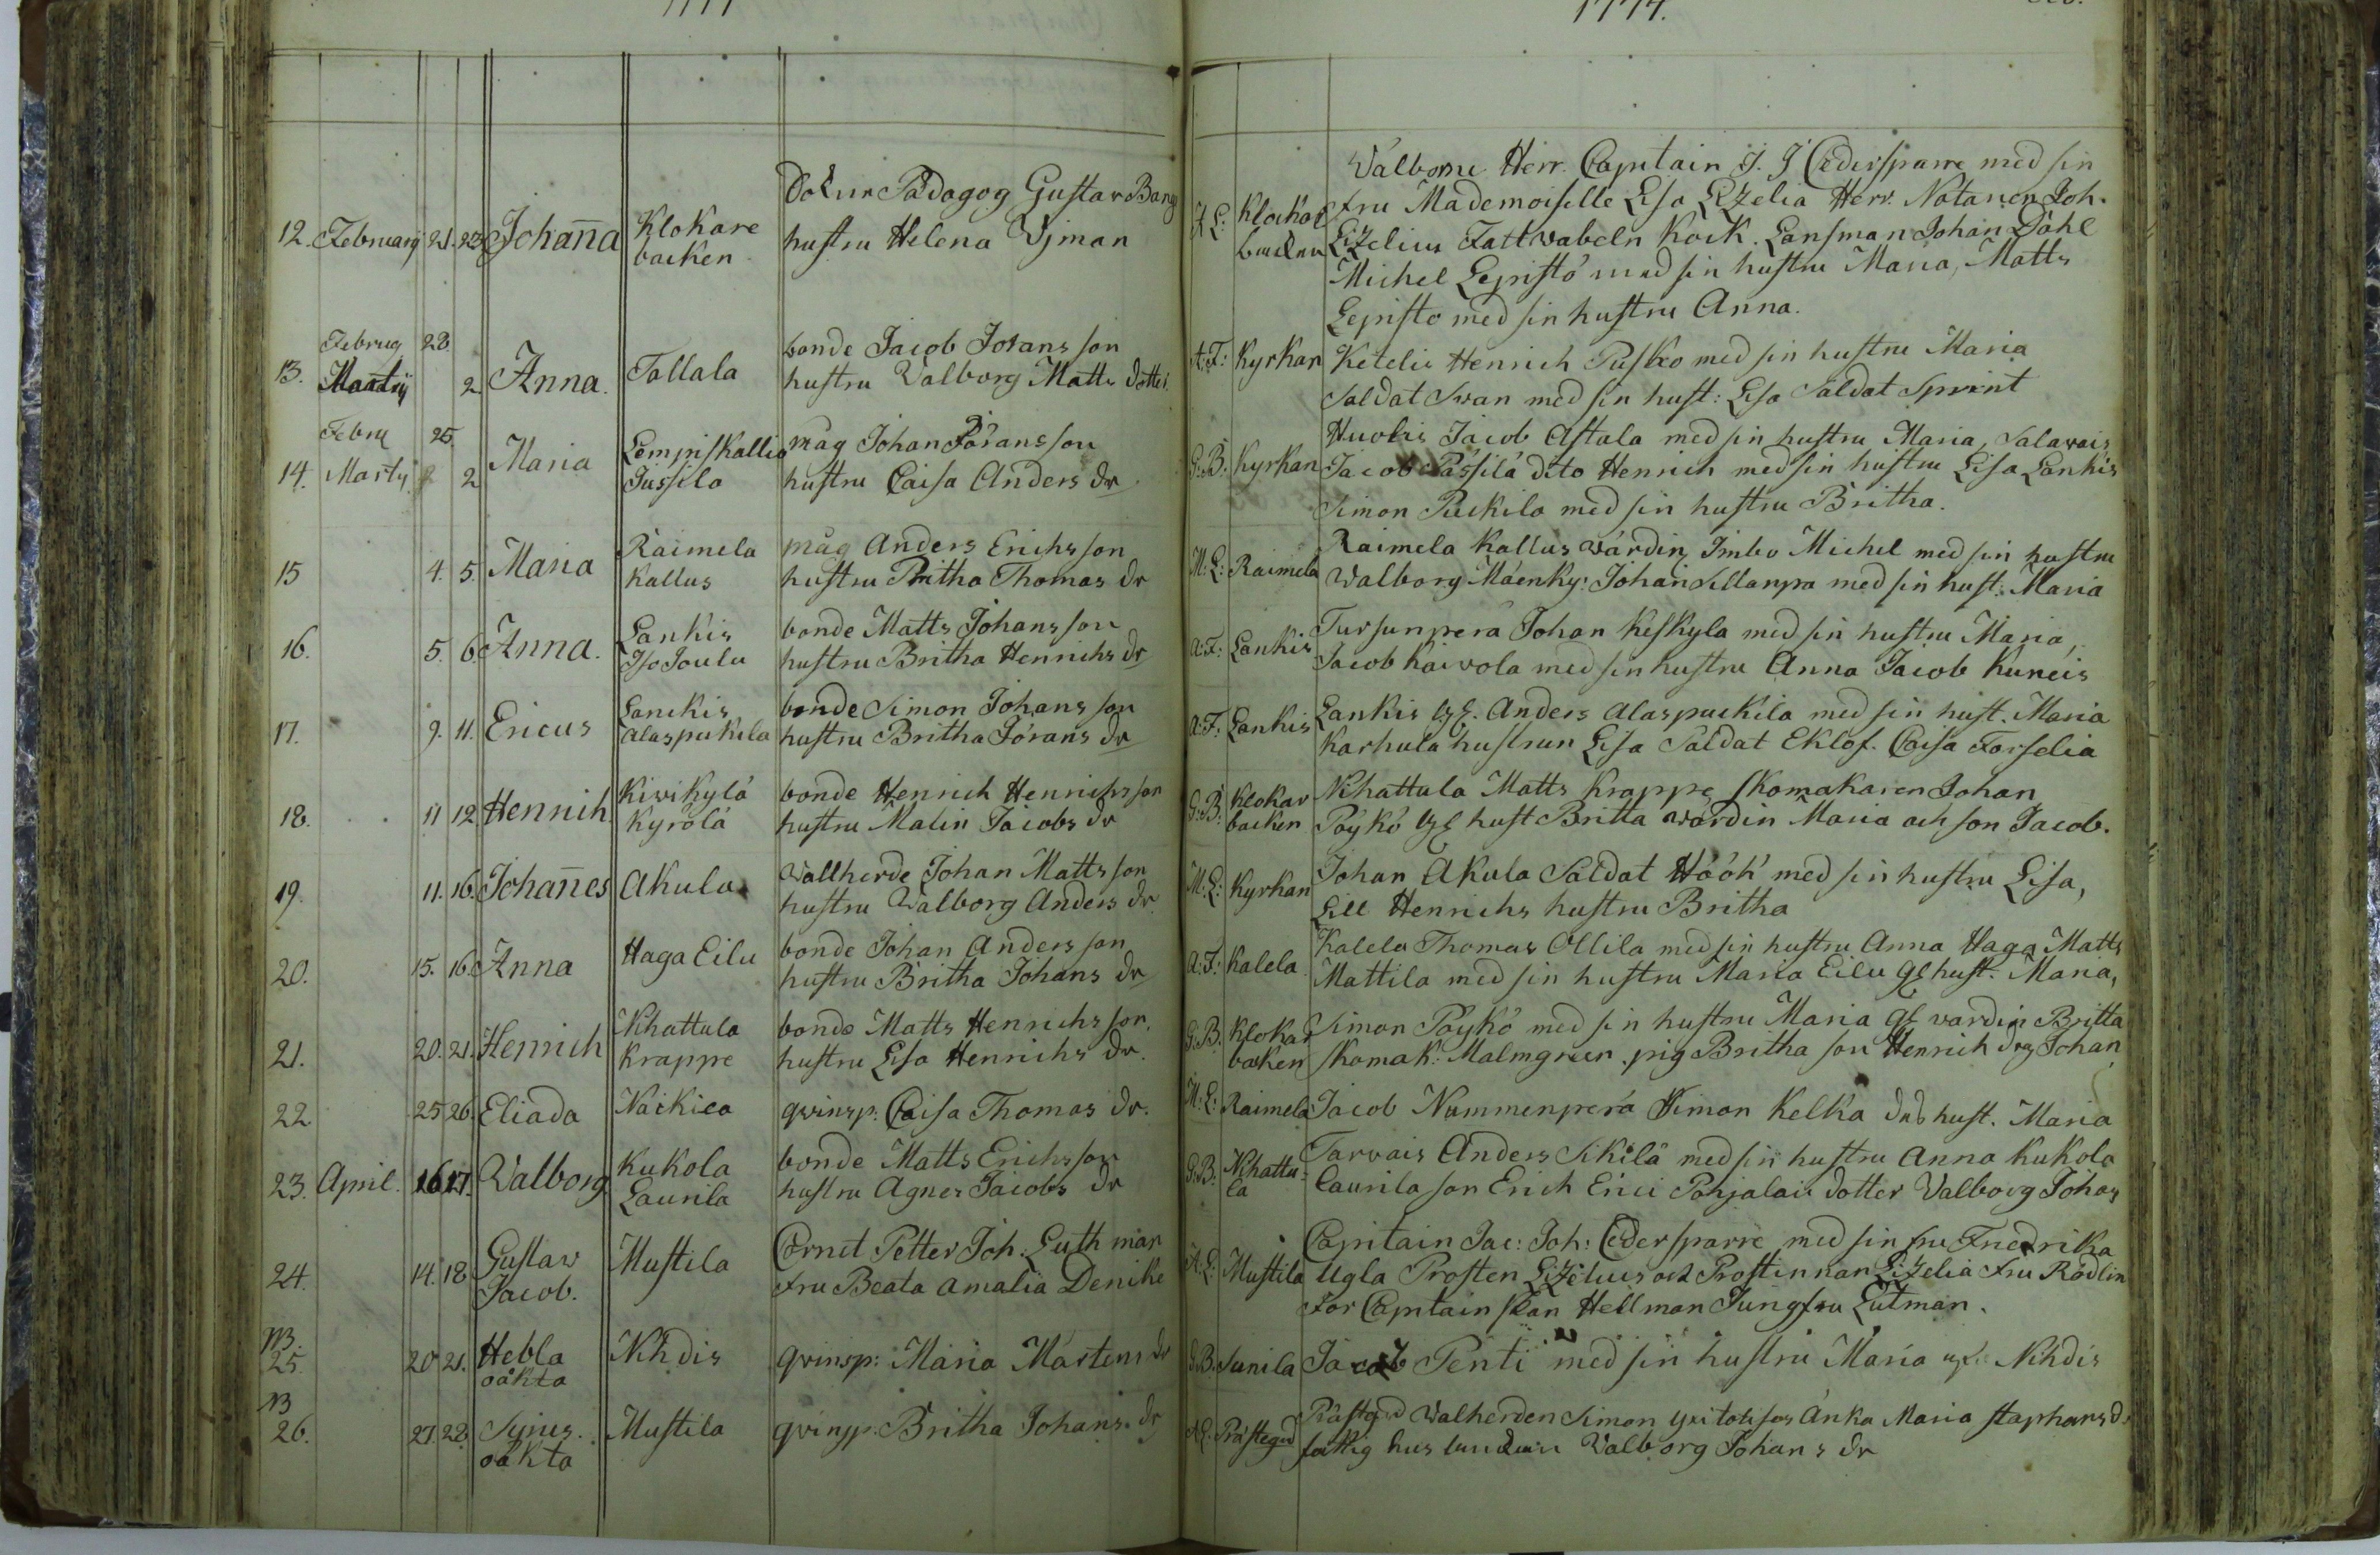 1774.
12. Februarij 21. 23. Johan̄a Klokare backen
Pädagog Gustav Bang
hustru Helena Vjman
Klockar backen
Välborne Herr. Capitain J. J Cedersparre med sin
fru Mademoiselle Lisa Lizelia Herr. Notarien Joh.
Lizelius Fattwabeln Kock. Lansman Johan Dahl
Michel Lepistö med sin hustru Maria, Matts
Lepisto med sin hustru Anna.
13. Februy 28. Martij 2. Anna. Tallala
bonde Jacob Jörans son
hustru Valborg Matts dotter.
A:F: Kyrkan
Ketelis Henrich Pusko med sin hustru Maria
Saldat Svan med sin hust: Lisa Saldat Sprint
14. Febru 25. Martij 2 Maria Lempiskallio Jussila
måg Johan Jöransson
hustru Caisa Anders dr
G:B: Kyrkan
Huolis Jacob Astala med sin hustru Maria, Salavais
Jacob Pässilä dito Henrich med sin hustru Lisa Lankis
Simon Puckila med sin hustru Britha.
15 4. 5. Maria Raimela Kallus
måg Anders Erichsson
hustru Britha Thomas dr
M:L: Raimela
Raimela Kallus värdin, Imbo Michel med sin hustru
Walborg Mäenky: Johan Sillanpä med sin hust: Maria
16. 5. 6. Anna. Lankis Iso Joulu
bonde Matts Johansson
hustru Britha Henrichs dr
A:F: Lankis
Tursunperä Johan Keskyla med sin hustru Maria,
Jacob Kaivola med sin hustru Anna Jacob Kuneis
17. 9. 11. Ericus Lanckis Alaspukila
bonde Simon Johans son
hustru Britha Jörans dr
A:F: Lankis
Lankis Anders Alaspuckila med sin hust. Maria
Karhula hustrun Lisa Saldat Eklöf. Caisa Forselia
18. 11 12 Henrich Kivikylä Kyrölä
bonde Henrich Henrichsson
hustru Malin Jacobs dr
G:B: Klokar backen
Nihattula Matts Krappe, Skomakaren Johan
Pöykö hust Britta värdin Maria och son Jacob.
19. 11. 16. Johan̄es Akula
Wallherde Johan Matts son
hustru Walborg Anders dr
M:L: Kyrkan
Johan Akula Saldat Höök med sin hustru Lisa,
Lill Henrichs hustru Britha
20. 15. 16. Anna Haga Eilu
bonde Johan Anders son
hustru Britha Johans dr
A:F: Kalela
Kalela Thomas Ollila med sin hustru Anna Haga Matts
Mattila med sin hustru Maria Eilu hust. Maria,
21. 20. 21. Henrich Nihattula Krappe
bonde Matts Henrichs son,
hustru Lisa Henrichs dr.
G:B. Klokar backen
Simon Pöykö med sin hustru Maria värdin Britta
Skomak: Malmgren, pig Britha son Henrich drg Johan
22. 25 26. Eliada Näckiea
qvinsp. Caisa Thomas dr.
M:L: Raimela
Jacob Nummenperä Simon Kelka hust. Maria
23. April. 16 17. Valborg Kukola Laurila
bonde Matts Erichsson
hustru Agnes Jacobs dr
G:B: Nihattu=la
Tarvais Anders Sikilä med sin hustru Anna Kukola
Laurila son Erich Erici Pohjalais dotter Valborg Johans
24. 14. 18 Gustav Jacob. Mustila
Cornet Petter Joh. Luthman
fru Beata Amalia Denike
A.L. Mustila
Capitain Jac: Joh: Cedersparre med sin fru Fredrika
Ugla Prosten Lizelius och Prostinnan Lizelia Fru Rödlin
For Capitain skan Hellman Jungfru Lutman.
NB. 25. 20 21. Hebla oäkta Nihdis
qvinsp: Maria Mårtens dr
G.B. Sunila
Jacob Penti med sin hustru Maria Nihdis
NB 26. 27. 28. oäkta Mustila
qvinsp. Britha Johans dr
A.L. Prästegrd
Prästegrd Walherden Simon Änka Maria Staphans d.
fattig hus Valborg Johans dr